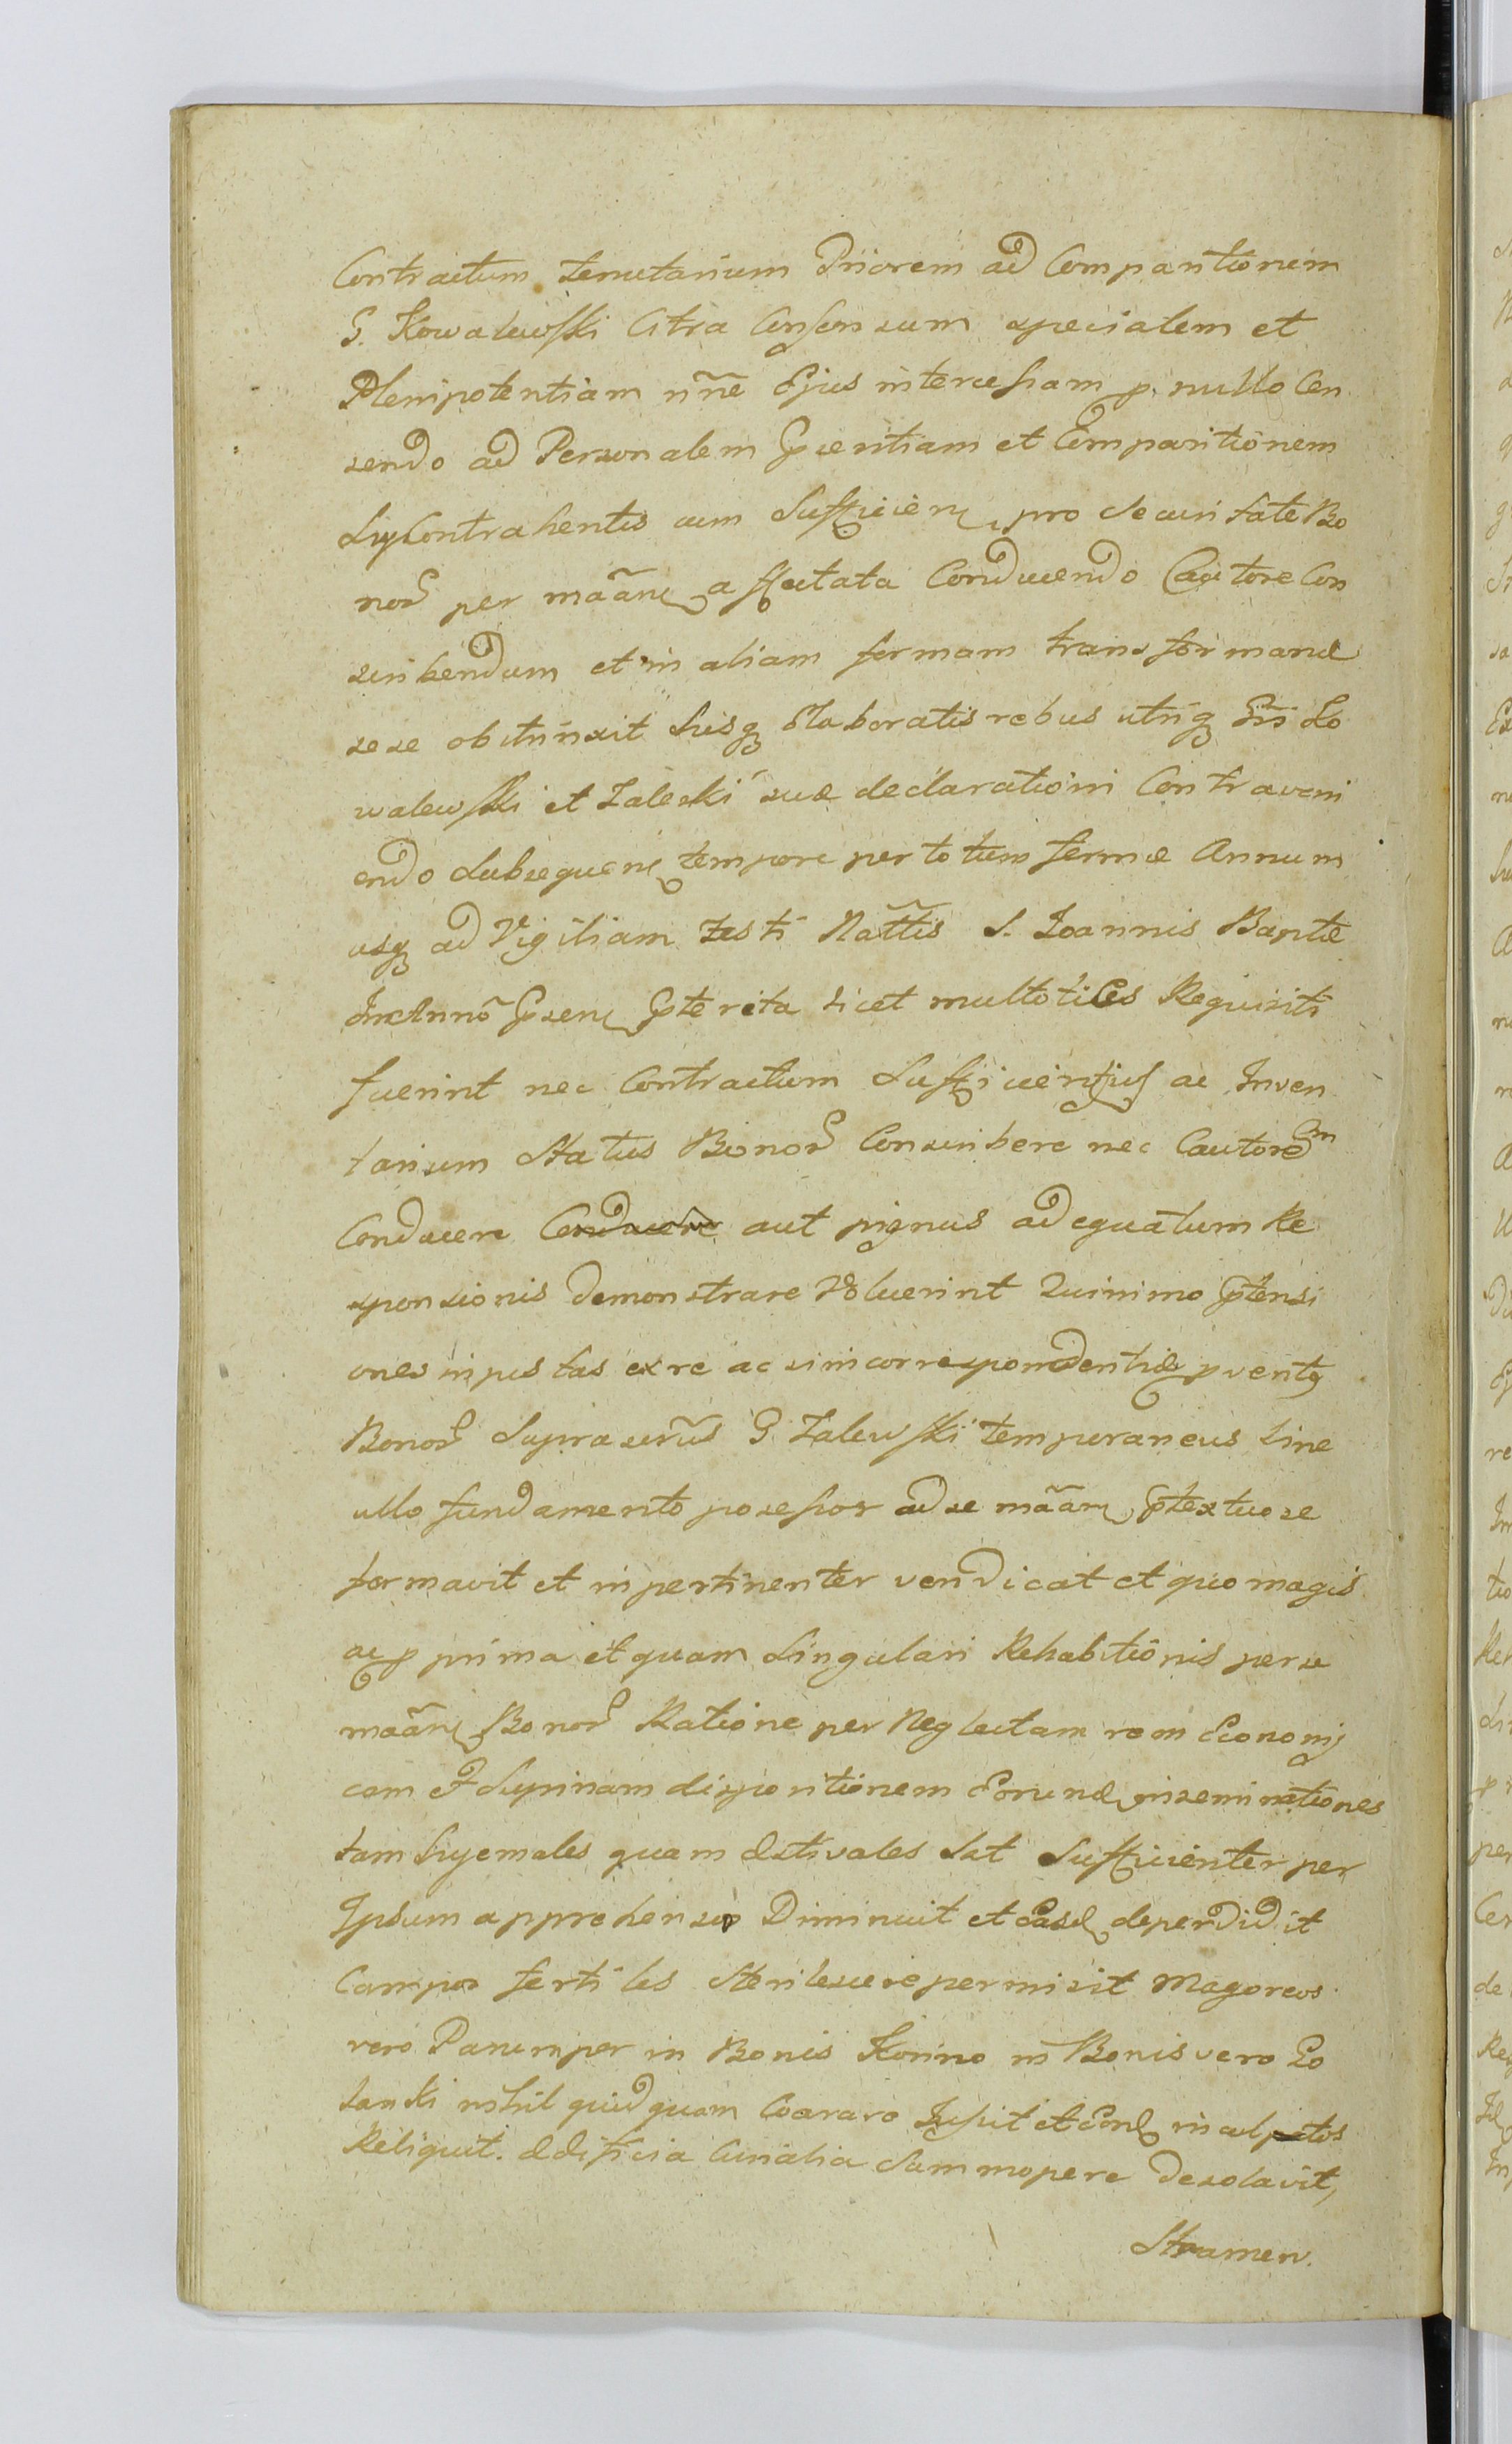 Contractum Tenutarium Priorem ad Comparitionem
G. Kowalewski Citra Consensum specialem et
Plenipotentiam nne Ejus intercessam p. nullo Cen
sendo ad Personalem Psentiam et Comparitionem
Sui Contrahentis cum Sufficien pro Securitate Bo
nor per maan affectata Conducendo Cautore Con
scribendum et in aliam formam transformand
sese obstrinxit hisq Elaboratis rebus utriq Gsi Ko
walewski et Zaleski suæ declarationi Contraveni
endo Subsequen tempore per totum ferme Annum
usq ad Vigiliam Festi Nattis S. Joannis Baptæ
In Anno Psen Pterita licet multoties Requisiti
fuerint nec Contractum Sufficientius ac Inven
tarium Status Bonor Conscribere nec Cautorem
Conducere Conducere aut pignus adequatum Re
sponsionis demonstrare Voluerint Quinimo Ptensi
ones injustas ex re ac si incorrespondentiæ pventq
Bonor Suprascrius G. Zalewski temporaneus Sine
ullo fundamento possessor ad se maan Ptextuose
formavit et inpertinenter vendicat et quo magis
ac p prima et quam Singulari Rehabitionis per se
maan Bonor Ratione per Neglectam rem Economi
cam et Supinam dispositionem Eorund inseminationes
tam hyemales quam Æstivales Sat Sufficienter per
Ipsum apprehensas Diminuit et Easd deperdidit
Campos fertiles Sterilescere permisit Magoreos
vero Parumper in Bonis Korino in Bonis vero Go
lanki nihil quidquam Coararo Jussit et Eosd incul_tos
Reliquit. Ædificia Curialia Summopere Desolavit,
Stramen.